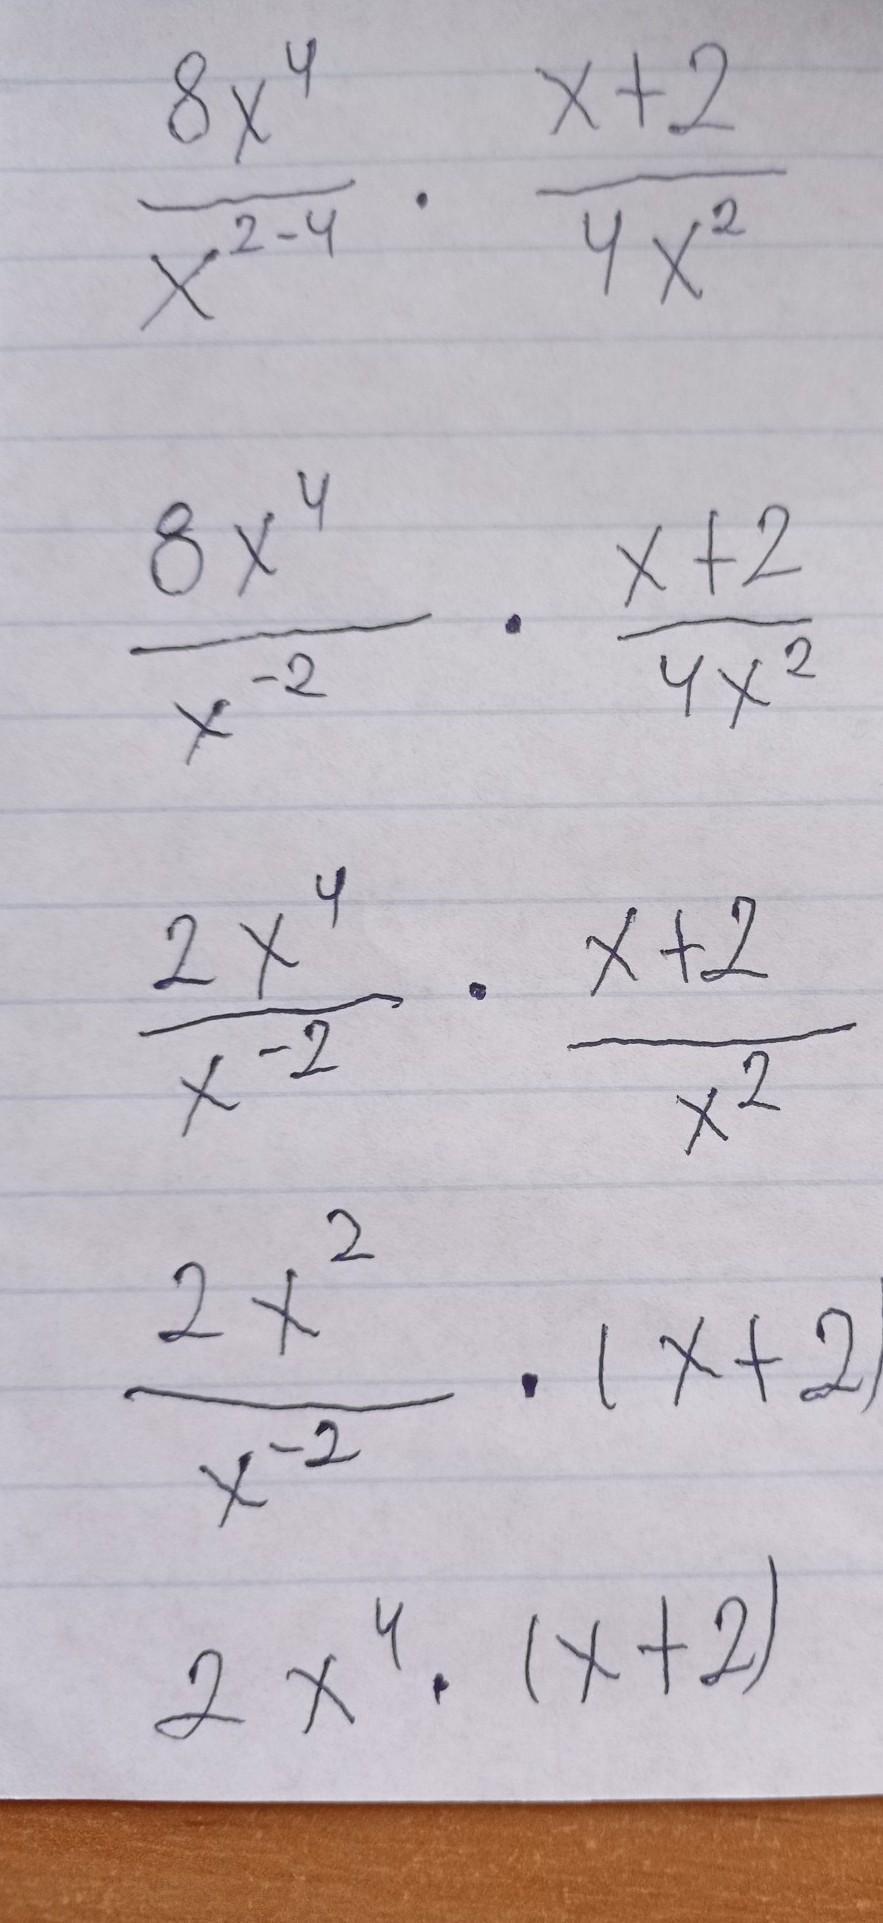 8x⁴/x²⁻⁴ · (x+2)/4x²
8x⁴/x⁻² · (x+2)/4x²
2x⁴/x⁻² · (x+2)/x²
2x²/x⁻² · (x+2)
2x⁴ · (x+2)